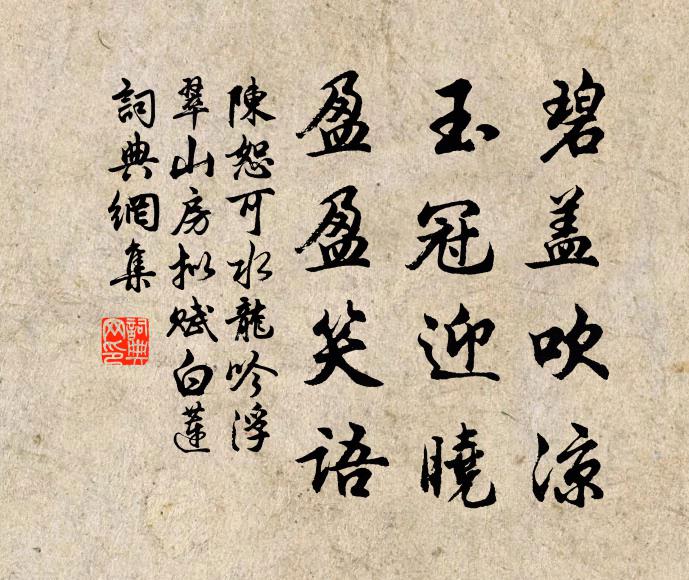 碧盖吹凉
玉冠迎曉
盈盈笑語
陳恕可水龍吟浮
翠山房拟赋白蓮
詞典網集
詞典
网印